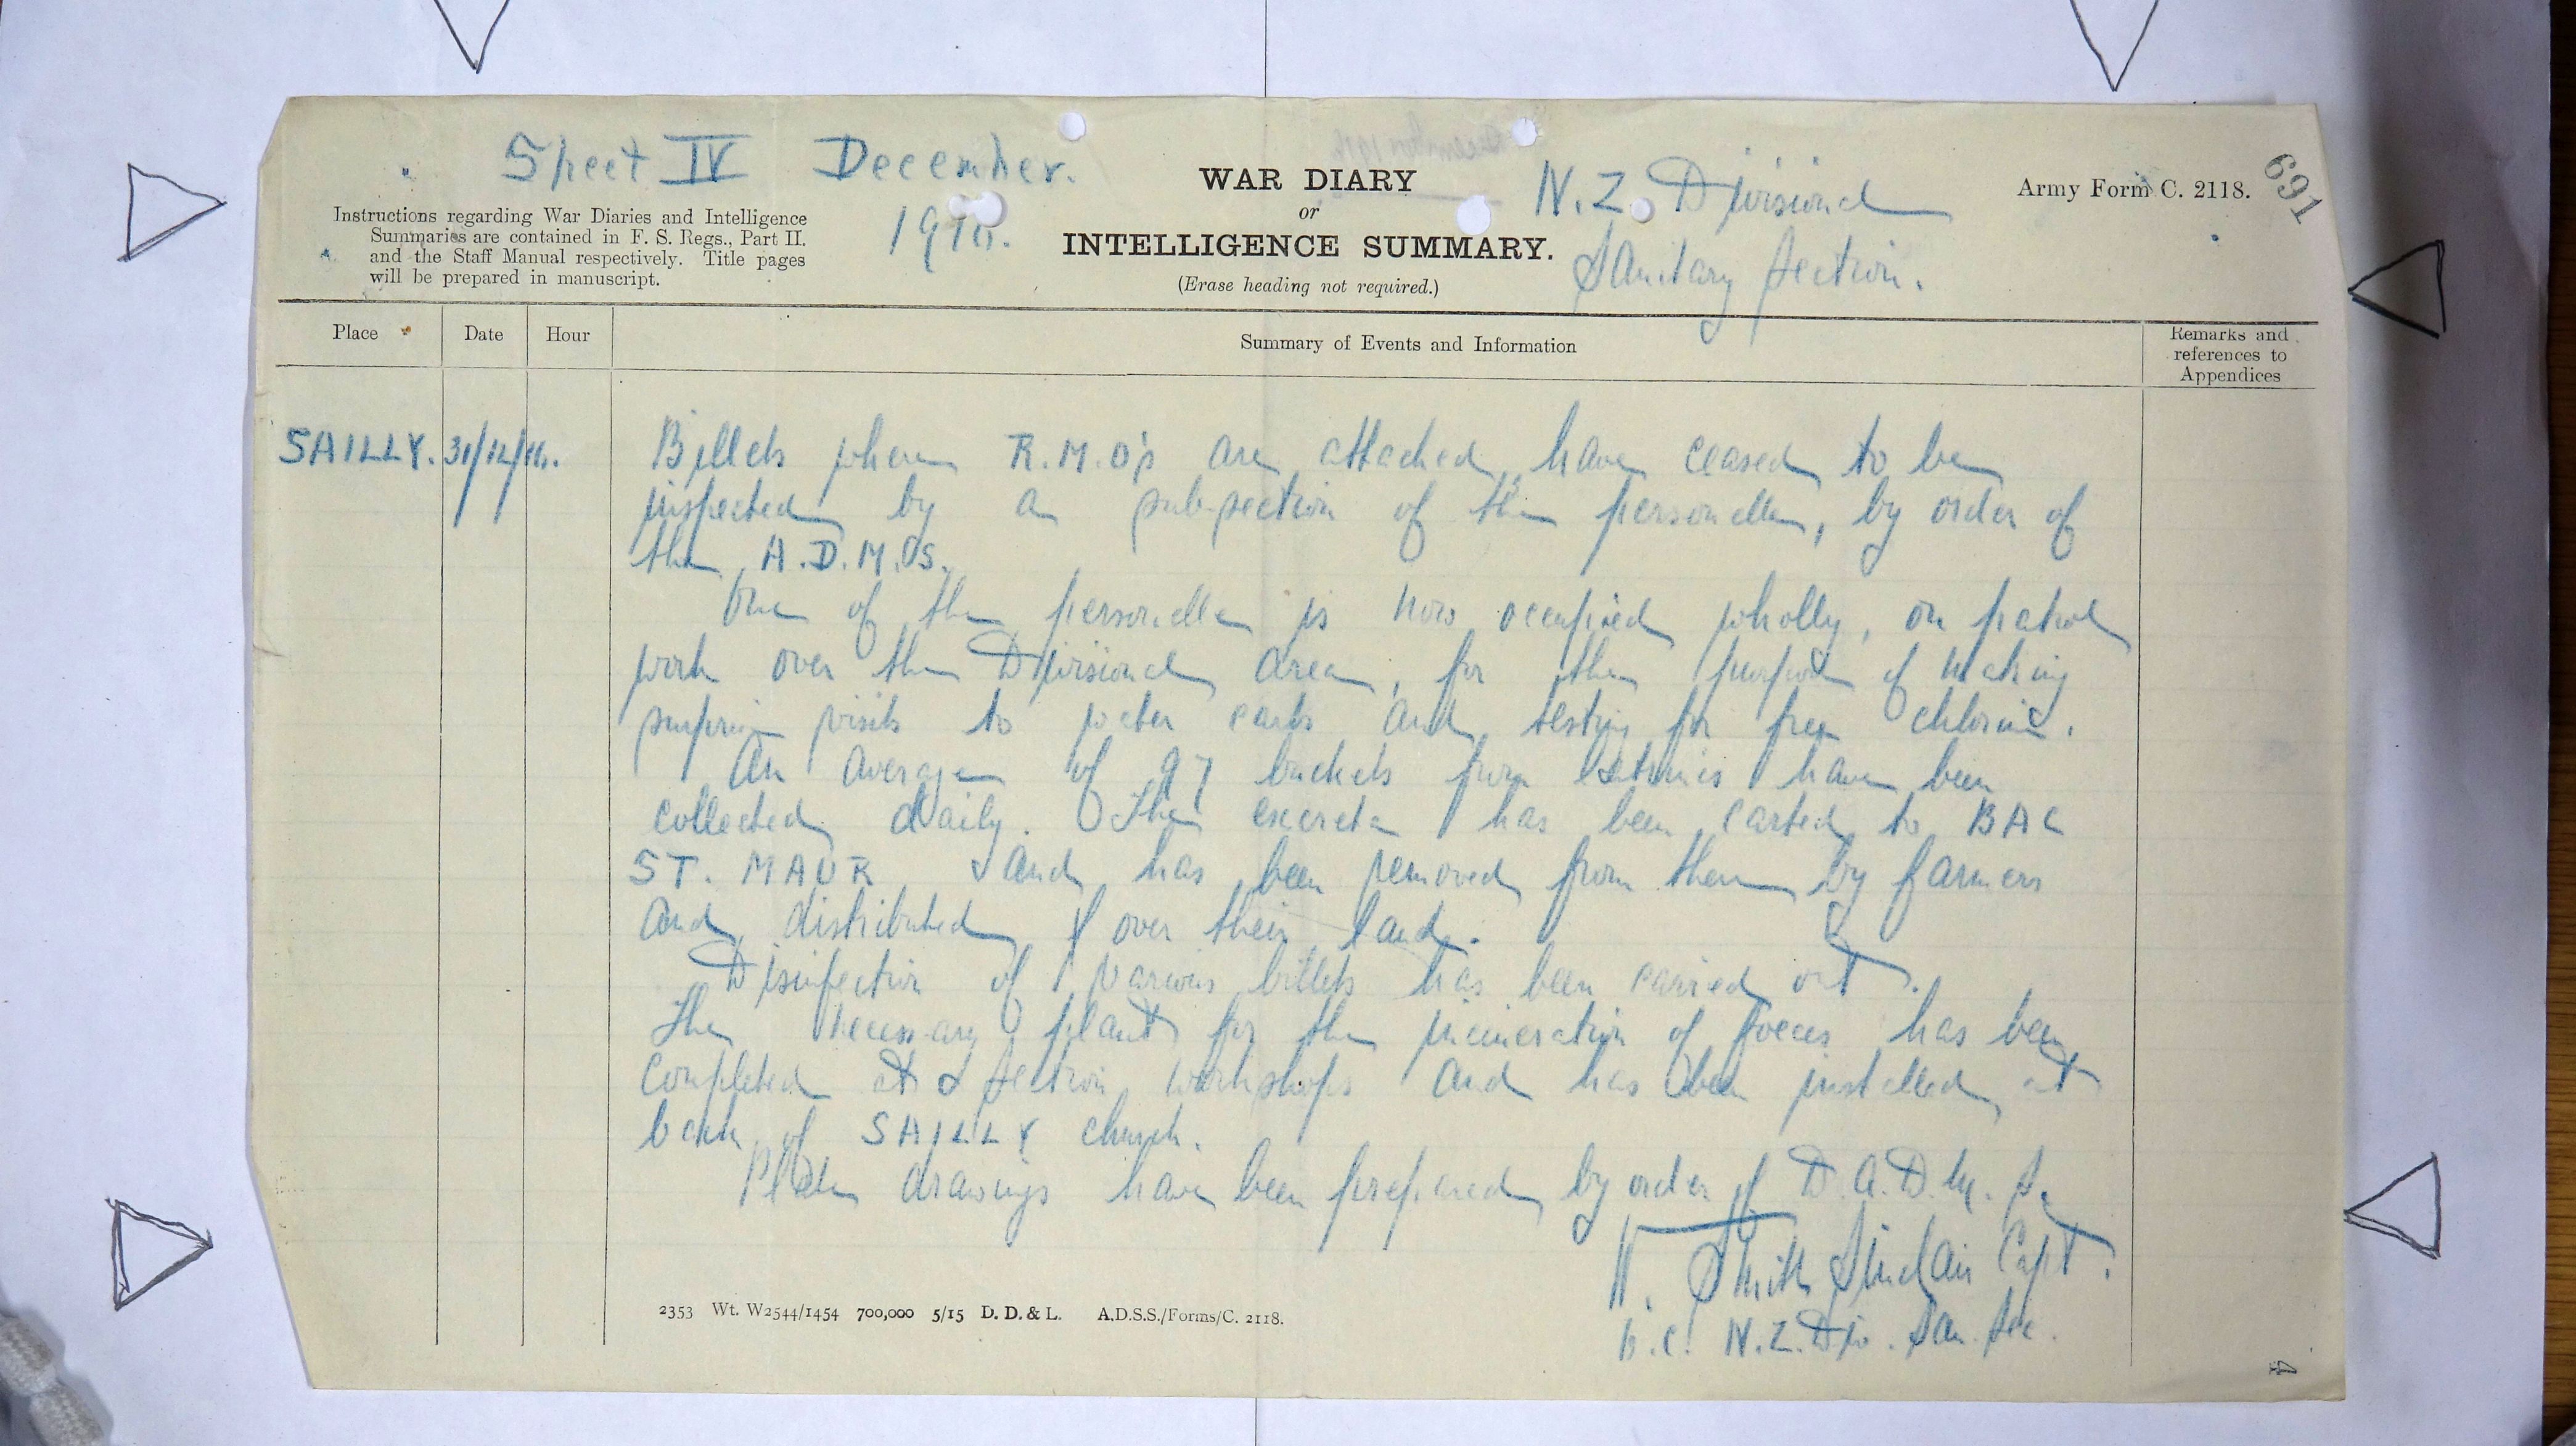 Sheet IV December.
1916.
WAR DIARY
or
INTELLIGENCE SUMMARY.
(Erase heading not required.)
N.Z. Divisional
Sanitary Section.
Army Form C. 2118.
691
Instructions regarding War Diaries and Intelligence
Summaries are contained in F. S. Regs., Part II.
and the Staff Manual respectively. Title pages
will be prepared in manuscript.
Place Date Hour Summary of Events and Information Remarks and
references to
Appendices
SAILLY. 31/12/16. Billets where R.M.O's are attached have ceased to be
inspected by a sub-section of the personelle, by order of
the A.D.M.S.
One of the personelle is now occupied wholly, on patrol
work over the Divisional area, for the purpose of making
surprise visits to water carts and testing for free chlorine.
An average of 97 buckets from latrines have been
collected daily. The excreta has been carted to BAC
ST. MAUR and has been removed from there by farmers
and distributed over their land.
Disinfection of various billets has been carried out.
The necessary plant for the incineration of foeces has been
completed at Section workshops and has been installed at
back of SAILLY church.
Plan drawings have been prepared by order of D.A.D.M.S.
W. Smith Sinclair Capt.
O.C. N.Z. Div. San. Sec.
2353 Wt. W2544/1454 700,000 5/15 D. D. & L. A.D.S.S./Forms/C. 2118.
4